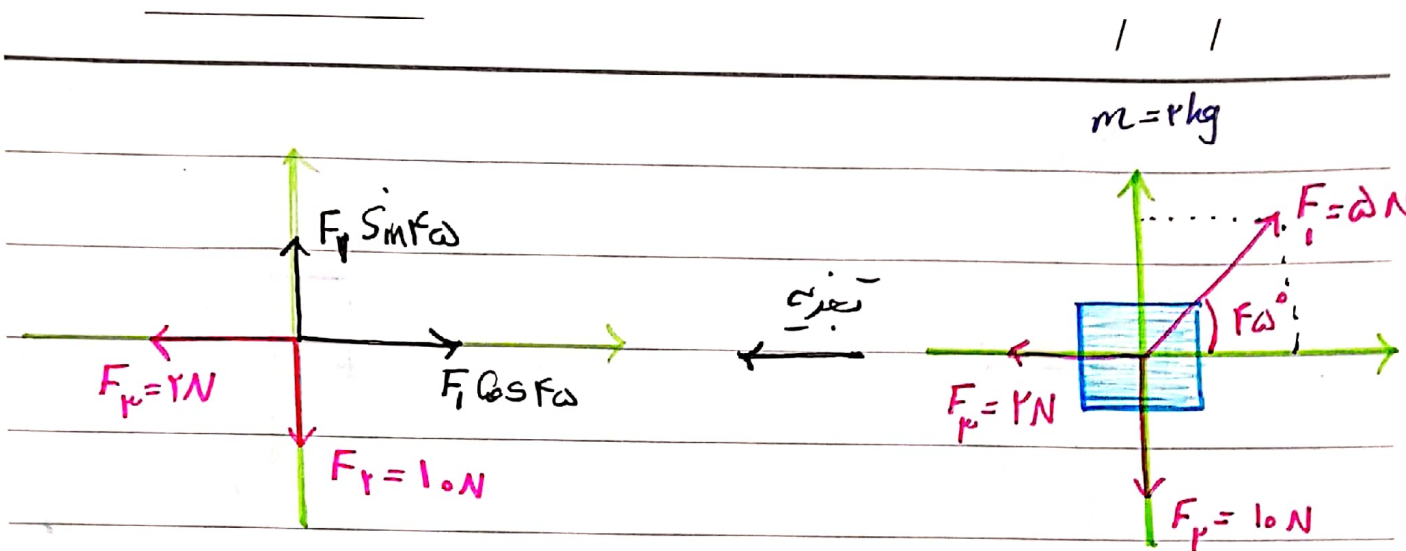 m=۲kg
F۱=۵N
۴۵°
F۳=۲N
F۲=۱۰N
تجزیه
F۲ Sin۴۵
F۱ Cos۴۵
F۳=۲N
F۲=۱۰N